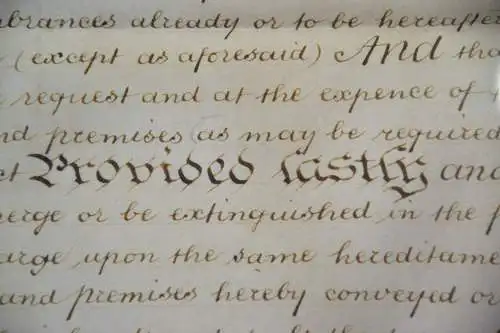 brances already or to be hereafter
(except as aforesaid) And tha
request and at the expence of
nd premises as may be required
ct Provided lastly and
erge or be extinguished in the f
arge upon the same hereditame
and premises hereby conveyed or